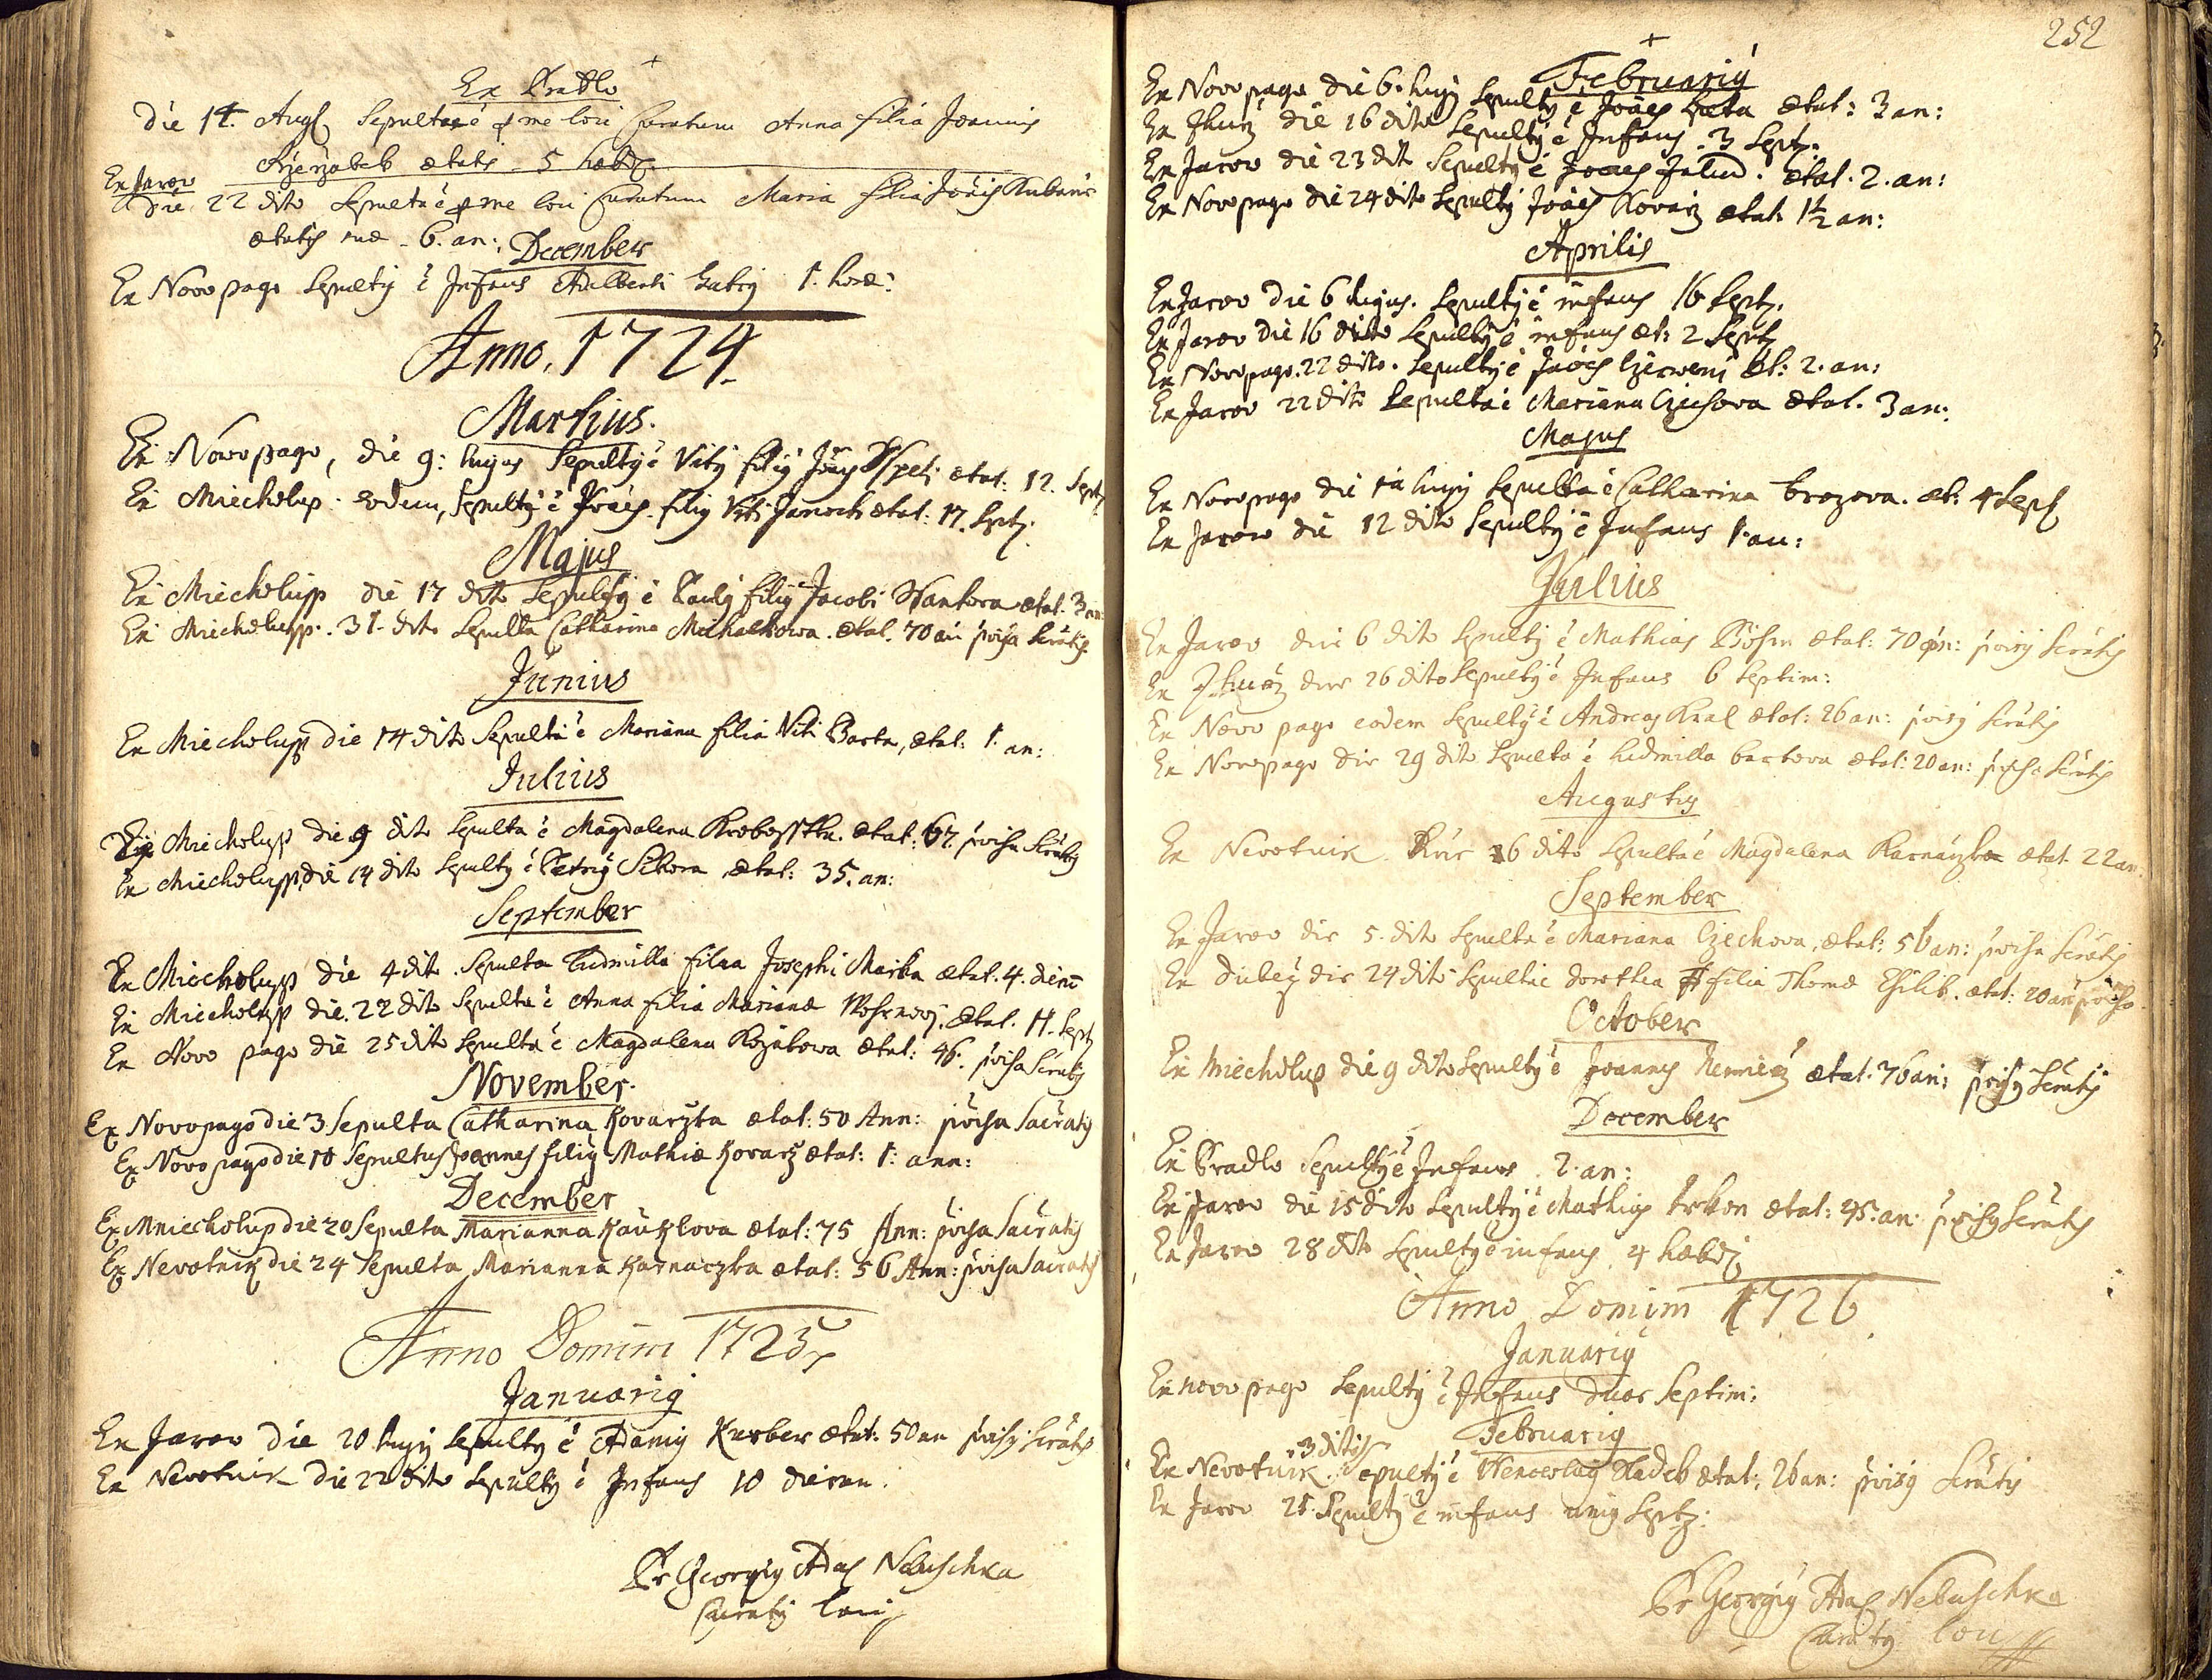 Ex Pradlo
Die 14. Aug Sepulta é p me loci Curatum Anna filia Joannis
aetatis 5 hebd
Ex Jarov
die 22 dito Sepulta é p me loci Curatum Maria filia Joāis
aetatis suae 6. an:
December
Ex Novo pago Sepulty é Infans Adalberti 1. horae:
Anno. 1724.
Martius.
Ex Novo pago, die 9: hujus Sepulty é Vity fily Joāis aetat: 12. Sept
Ex Miecholup. eodem, Sepulty é Joāes fily Viti Janoch aetat: 17. Sptz.
Majus
Ex Miecholupp die 17 dito Sepulty é Pauly fily Jacobi Wantora aetat. 3 an
Ex Miecholupp. 31. dito Sepulta Catharina Michalkowa. aetat. 70 an pvisa Scrātis
Junius
Ex Miecholupp die 14 dito Sepulta é Mariana filia Viti Barta, aetat: 1. an:
Julius
Ex Miecholupp die 9 dito Sepulta é Magdalena aetat: 67. pvisa Scrātis
Ex Miecholupp, die 14 dito Sepulty é Petry Sikora aetat: 35. an:
September
Ex Miecholupp die 4 dito. Sepulta Ludmilla filia Josephi Maska aetat. 4. diem
Ex Miecholupp die. 22 dito Sepulta é Anna filia Marianae aetat. 11. Sept
Ex Novo pago die 25 dito Sepulta é Magdalena aetat: 46. pvisa Scrātis
November.
Ex Novo pago die 3 Sepulta Catharina Kovarzka aetat: 50 Ann: pvisa Sacratis
Ex Novo pago die 10 Sepultus Joannes fily Mathiae Kovarz aetat: 1: ann:
December
Ex Mniecholup die 20 Sepulta Marianna Kautzlova aetat: 75 Ann: pvisa Sacratis
Ex Nevotnik die 24 Sepulta Marianna Karnaczka aetat: 56 Ann: pvisa Sacratis
Anno Domini 1725
Januariy
Ex Jarov die 20 hujy Sepulty é Adamy Kurber aetat: 50 an pvisy Scrātis
Ex Nevotnik die 22 dito Sepulty é Infans 10 dieran.
Pr Georgiy Ada Nebuschka
Curaty loci
252
Februariy
Ex Novo pago die 6. hujy Sepulty é Joāes aetat: 3 an:
Ex die 16 dito Sepulty é Infans. 3 Septz.
Ex Jarov die 23 dito Sepulty é Joaes aetat. 2. an:
Ex Novo pago die 24 dito Sepulty Joāes Kovarz aetat. 1½ an:
Aprilis
Ex Jarov die 6 hujus. Sepulty é infans 16 Septz.
Ex Jarov die 16 dito Sepulty é infans aet: 2 Septz
Ex Novo pago. 22 dito. Sepulty é Joāes Czerweni aet: 2. an:
Ex Jarov 22 dito Sepulta é Mariana Czechova aetat. 3 an:
Majus
Ex Novo pago die hujy Sepulta é Catharina brozova. aet: 4 Sept
Ex Jarow die 12 dito Sepulty é Infans 1. an:
Julius
Ex Jarov die 6 dito Sepulty é Mathias Böhm aetat: 70 an: pvisy Scrātis
Ex die 26 dito Sepulty é Infans 6 Septim:
Ex Novo pago eodem Sepulty é Andreas Kral aetat: 26 an: pvisy Scrātis
Ex Novo pago die 29 dito Sepulta é Ludmilla bartova aetat: 20 an: pvisa Scrātis
Augusty
Ex Nevotnik die 16 dito Sepulta é Magdalena Karnarzka aetat. 22 an.
September
Ex Jarov die 5. dito Sepulta é Mariana Czechova, aetat: 56 an: pvisa Scrātis
Ex die 24 dito Sepulta é dorothea filia Thomae aetat: 20 an pvisa
October
Ex Miecholup die 9 dito Sepulty é Joannes aetat. 76 an: pvisy Scrātis
December
Ex Pradlo Sepulty é Infans 2. an:
Ex Jarov die 15 dito Sepulty é Mathias aetat: 45. an: pvisy Scrātis
Ex Jarov 28 dito Sepulty é infans 4 hebd
Anno Domini 1726
Januariy
Ex novo pago Sepulty é Infans duor Septim:
Februariy
Ex Nevotnik 3 ditis Sepulty é Wenceslay Hadeb aetat: 26 an: pvisy Scrātis
Ex Jarov 21. Sepulty é infans uniy Septz:
Pr Georgiy Ada Nebuschka
Curaty loci